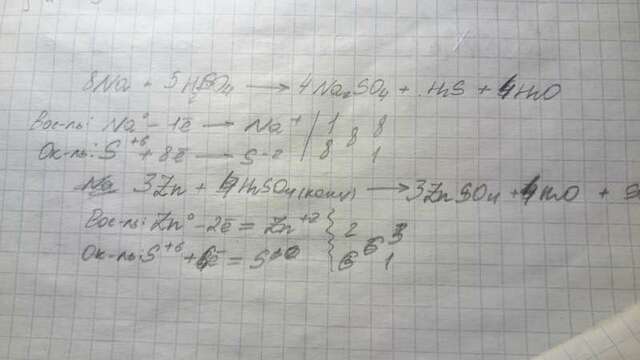 8Na + 5H₂SO₄ → 4Na₂SO₄ + H₂S + 4H₂O
Вос-ль: Na⁰ - 1ē → Na⁺ | 1 | 8 | 8
Ок-ль: S⁺⁶ + 8ē → S⁻² | 8 | 1
3Zn + 4H₂SO₄(конц) → 3ZnSO₄ + 4H₂O + S
Вос-ль: Zn⁰ - 2ē = Zn⁺² } 2 6 3
Ок-ль: S⁺⁶ + 6ē = S⁰ } 6 1